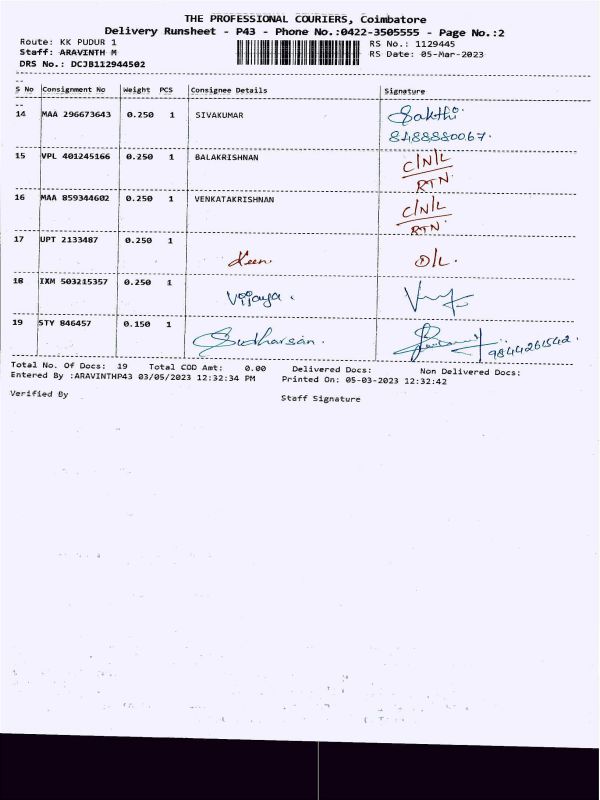 THE PROFESSIONAL COURIERS, Coimbatore
Delivery Runsheet - P43 - Phone No.:0422-3505555 - Page No.:2
Route: KK PUDUR 1 RS No.: 1129445
Staff: ARAVINTH M RS Date: 05-Mar-2023
DRS No.: DCJB112944502
S No Consignment No Weight PCS Consignee Details Signature
14 MAA 296673643 0.250 1 SIVAKUMAR Sakthi
8488880067.
15 VPL 401245166 0.250 1 BALAKRISHNAN C/N/L
RTN.
16 MAA 859344602 0.250 1 VENKATAKRISHNAN C/N/L
RTN.
17 UPT 2133487 0.250 1
D/L.
18 IXM 503215357 0.250 1 Vijjaya.
19 STY 846457 0.150 1 Sudharsan. 9844261542.
Total No. Of Docs: 19 Total COD Amt: 0.00 Delivered Docs: Non Delivered Docs:
Entered By :ARAVINTHP43 03/05/2023 12:32:34 PM Printed On: 05-03-2023 12:32:42
Verified By Staff Signature